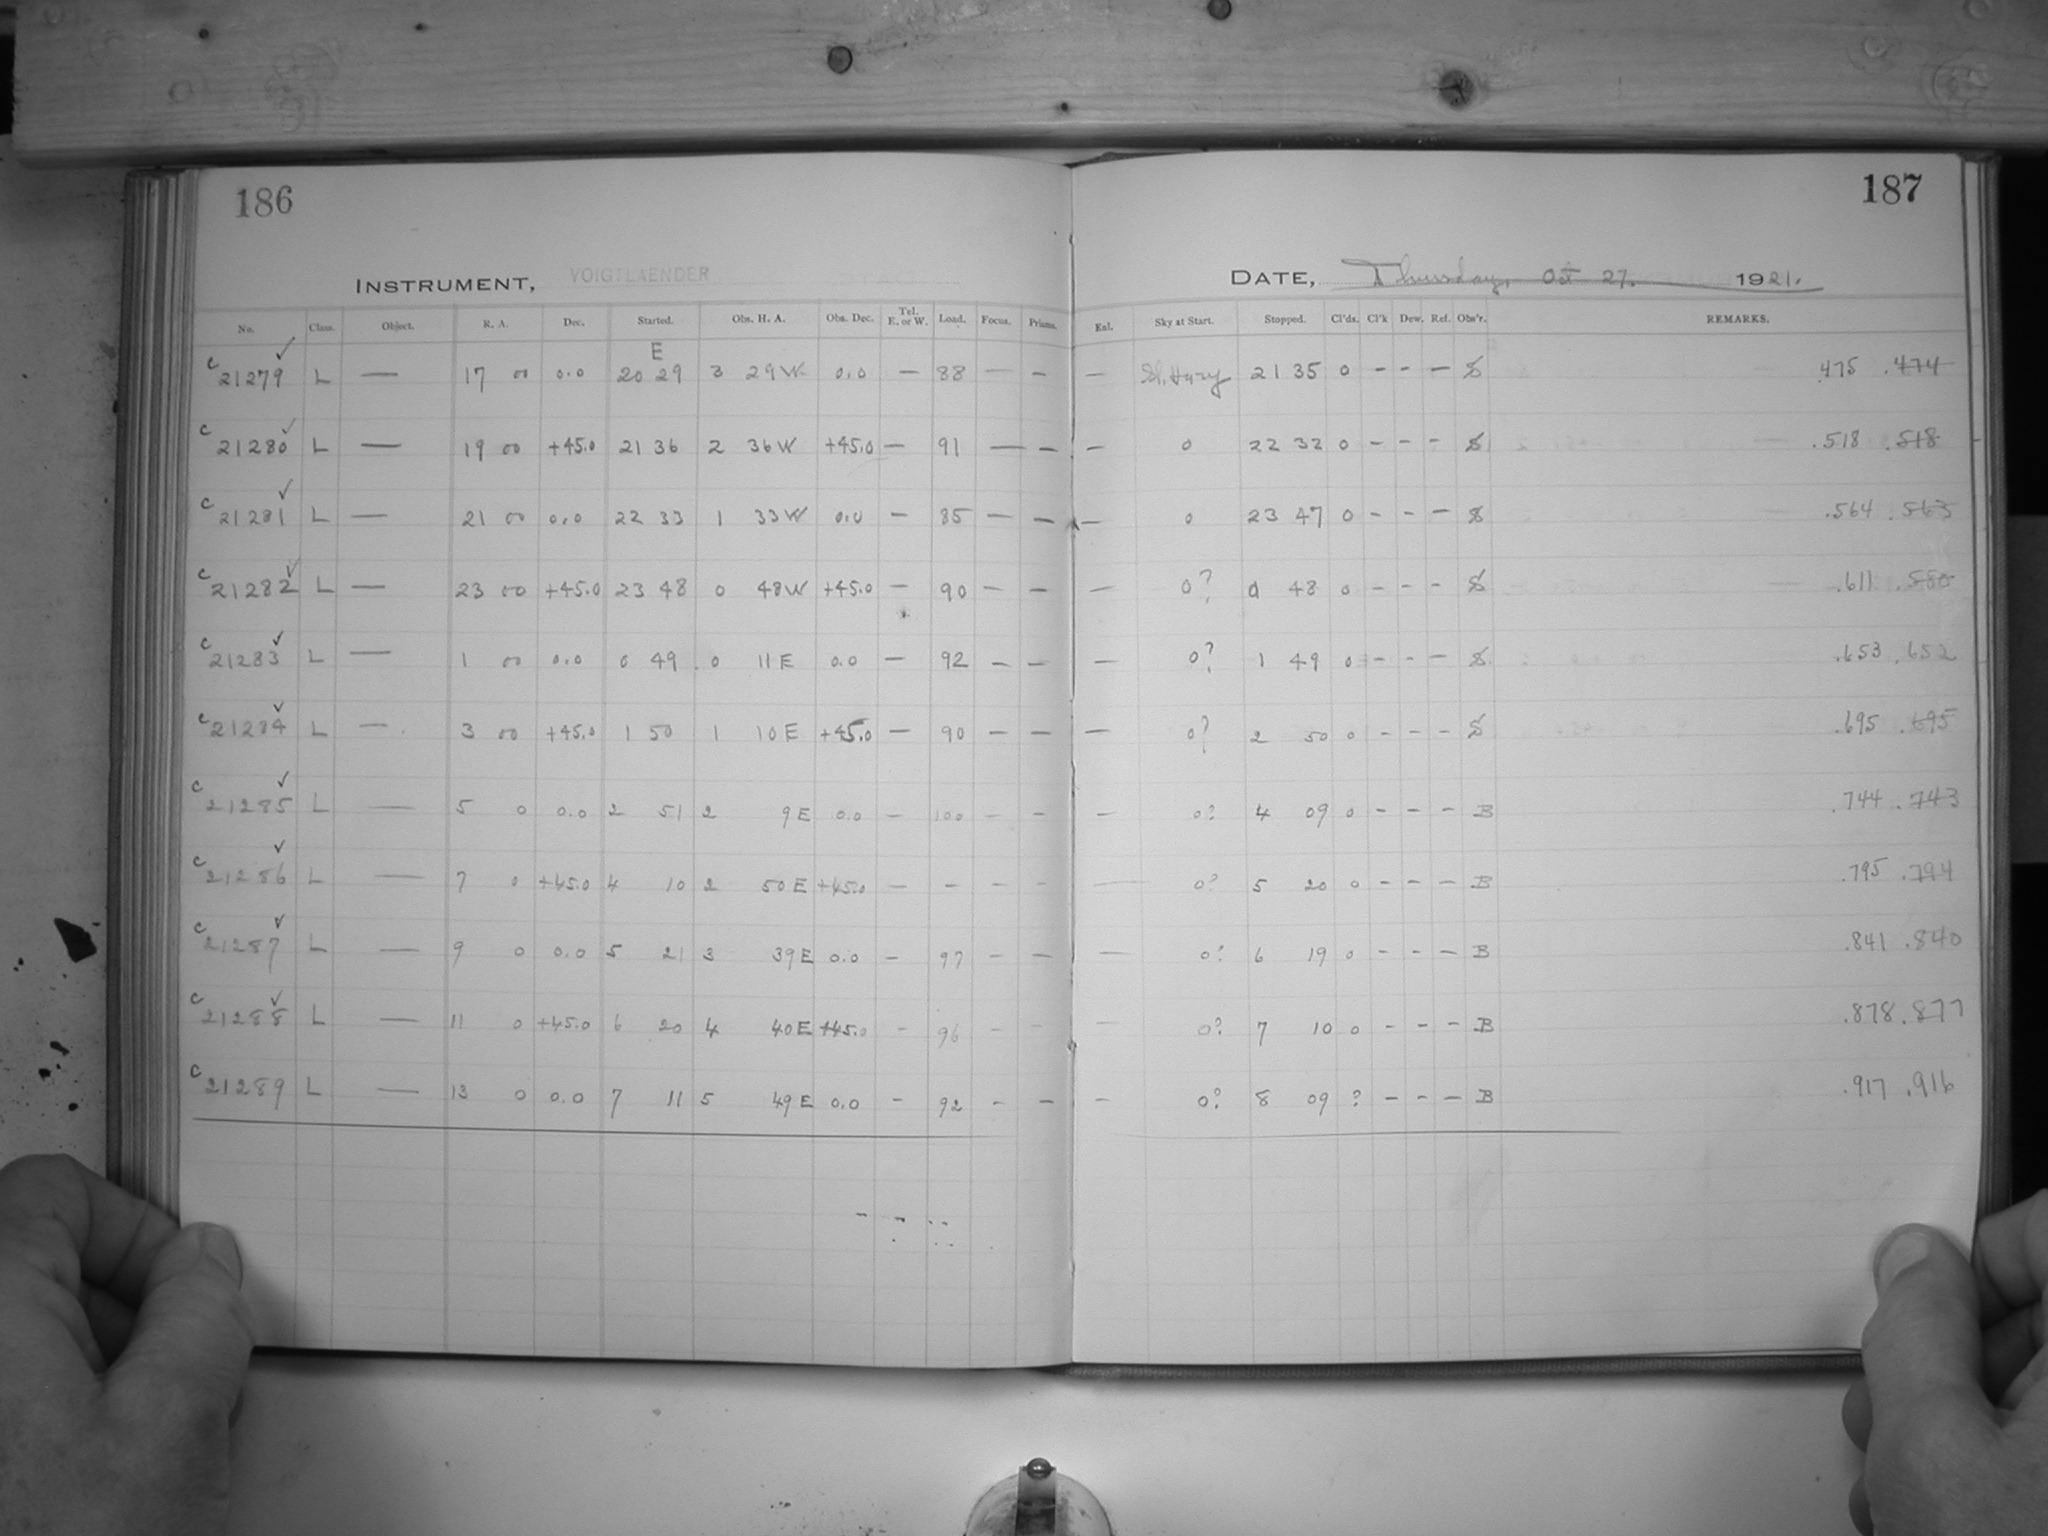 186
187
INSTRUMENT, VOIGTLAENDER
DATE, Thursday, Oct 27. 1921.
No. Class. Object. R. A. Dec. Started. Obs. H. A. Obs. Dec. Tel. E. or W. Load. Focus. Prisms. Enl. Sky at Start. Stopped. Cl'ds. Cl'k Dew. Ref. Obs'r. REMARKS.
E
c 21279 ✓ L — 17 00 0.0 20 29 3 29 W 0.0 — 88 — — — Sl. Hazy 21 35 0 - - - S .475 .474
c 21280 ✓ L — 19 00 +45.0 21 36 2 36 W +45.0 — 91 — — — 0 22 32 0 - - - S .518 .518
c 21281 ✓ L — 21 00 0.0 22 33 1 33 W 0.0 — 85 — — — 0 23 47 0 - - - S .564 .563
c 21282 ✓ L — 23 00 +45.0 23 48 0 48 W +45.0 — 90 — — — 0? 0 48 0 - - - S .611 .580
c 21283 ✓ L — 1 00 0.0 0 49 0 11 E 0.0 — 92 — — — 0? 1 49 0 - - - S .653 .652
c 21284 ✓ L — 3 00 +45.0 1 50 1 10 E +45.0 — 90 — — — 0? 2 50 0 - - - S .695 .695
c 21285 ✓ L — 5 0 0.0 2 51 2 9 E 0.0 — 100 — — — 0? 4 09 0 - - - B .744 .743
c 21286 ✓ L — 7 0 +45.0 4 10 2 50 E +45.0 — - - - — 0? 5 20 0 - - - B .795 .794
c 21287 ✓ L — 9 0 0.0 5 21 3 39 E 0.0 — 97 — — — 0? 6 19 0 - - - B .841 .840
c 21288 ✓ L — 11 0 +45.0 6 20 4 40 E +45.0 - 96 - - — 0? 7 10 0 - - - B .878 .877
c 21289 L — 13 0 0.0 7 11 5 49 E 0.0 - 92 - — — 0? 8 09 ? - - - B .917 .916